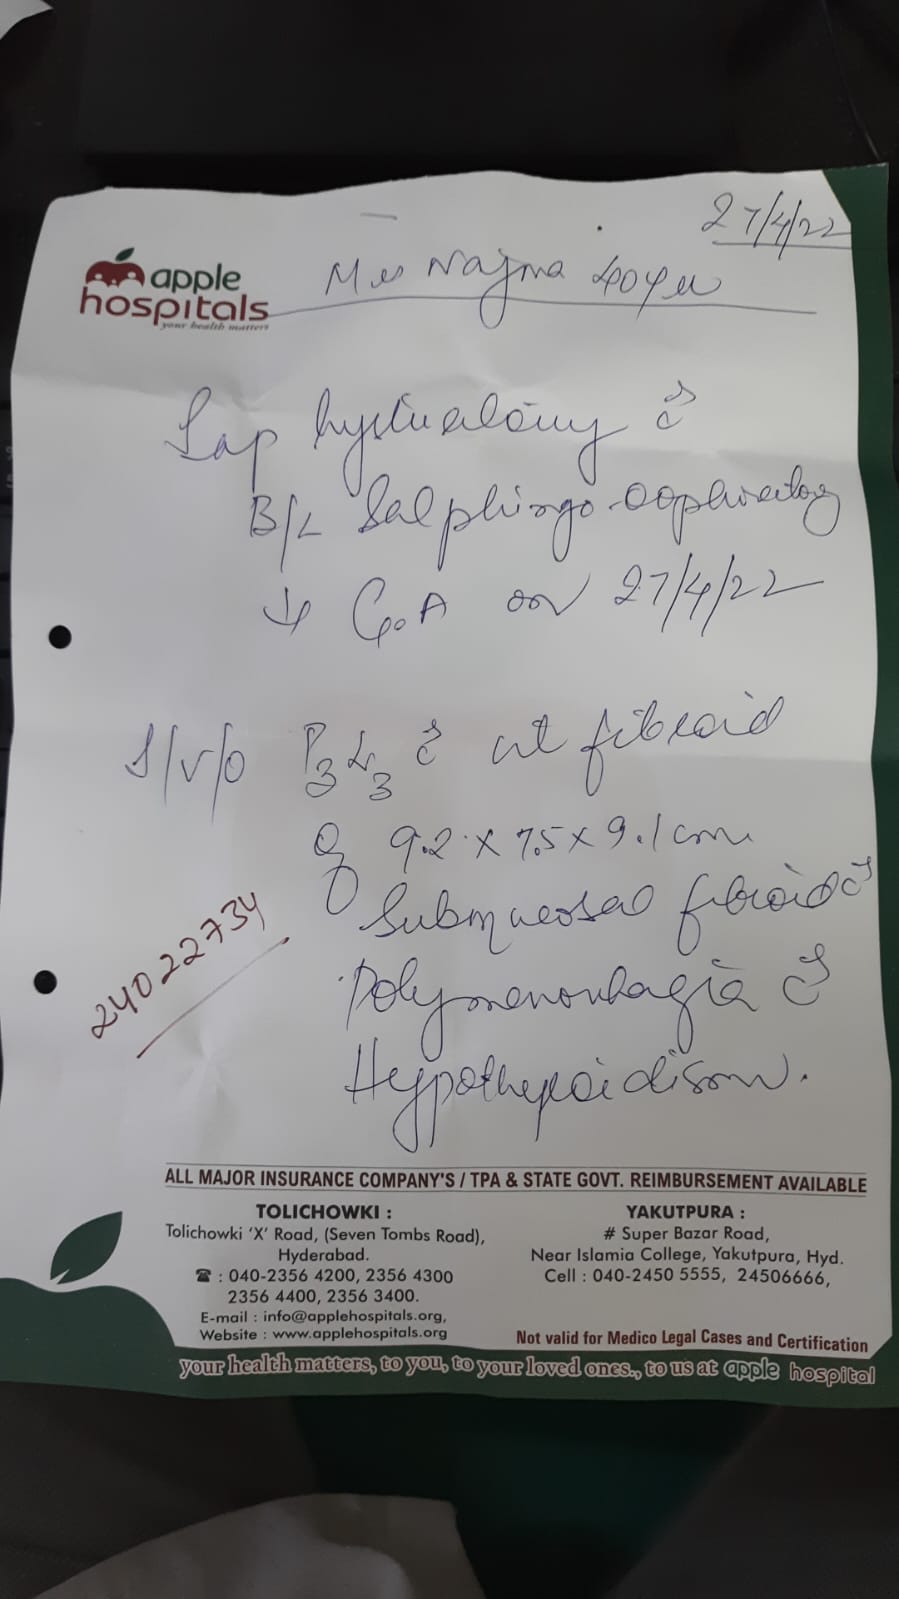 27/4/22
apple
hospitals
your health matters
Mrs Najma 40yrs
Lap hysterectomy c̄
B/L Salphingo-oophrectomy
↓ G.A on 27/4/22
I/v/o P3L3 c̄ ut fibroid
of 9.2 x 7.5 x 9.1 cm
Submucosal fibroid c̄
Polymenorrhagia c̄
Hypothyroidism.
24022734
ALL MAJOR INSURANCE COMPANY'S / TPA & STATE GOVT. REIMBURSEMENT AVAILABLE
TOLICHOWKI :
Tolichowki 'X' Road, (Seven Tombs Road),
Hyderabad.
☎ : 040-2356 4200, 2356 4300
2356 4400, 2356 3400.
E-mail : info@applehospitals.org,
Website : www.applehospitals.org
YAKUTPURA :
# Super Bazar Road,
Near Islamia College, Yakutpura, Hyd.
Cell : 040-2450 5555, 24506666,
Not valid for Medico Legal Cases and Certification
your health matters, to you, to your loved ones., to us at apple hospital